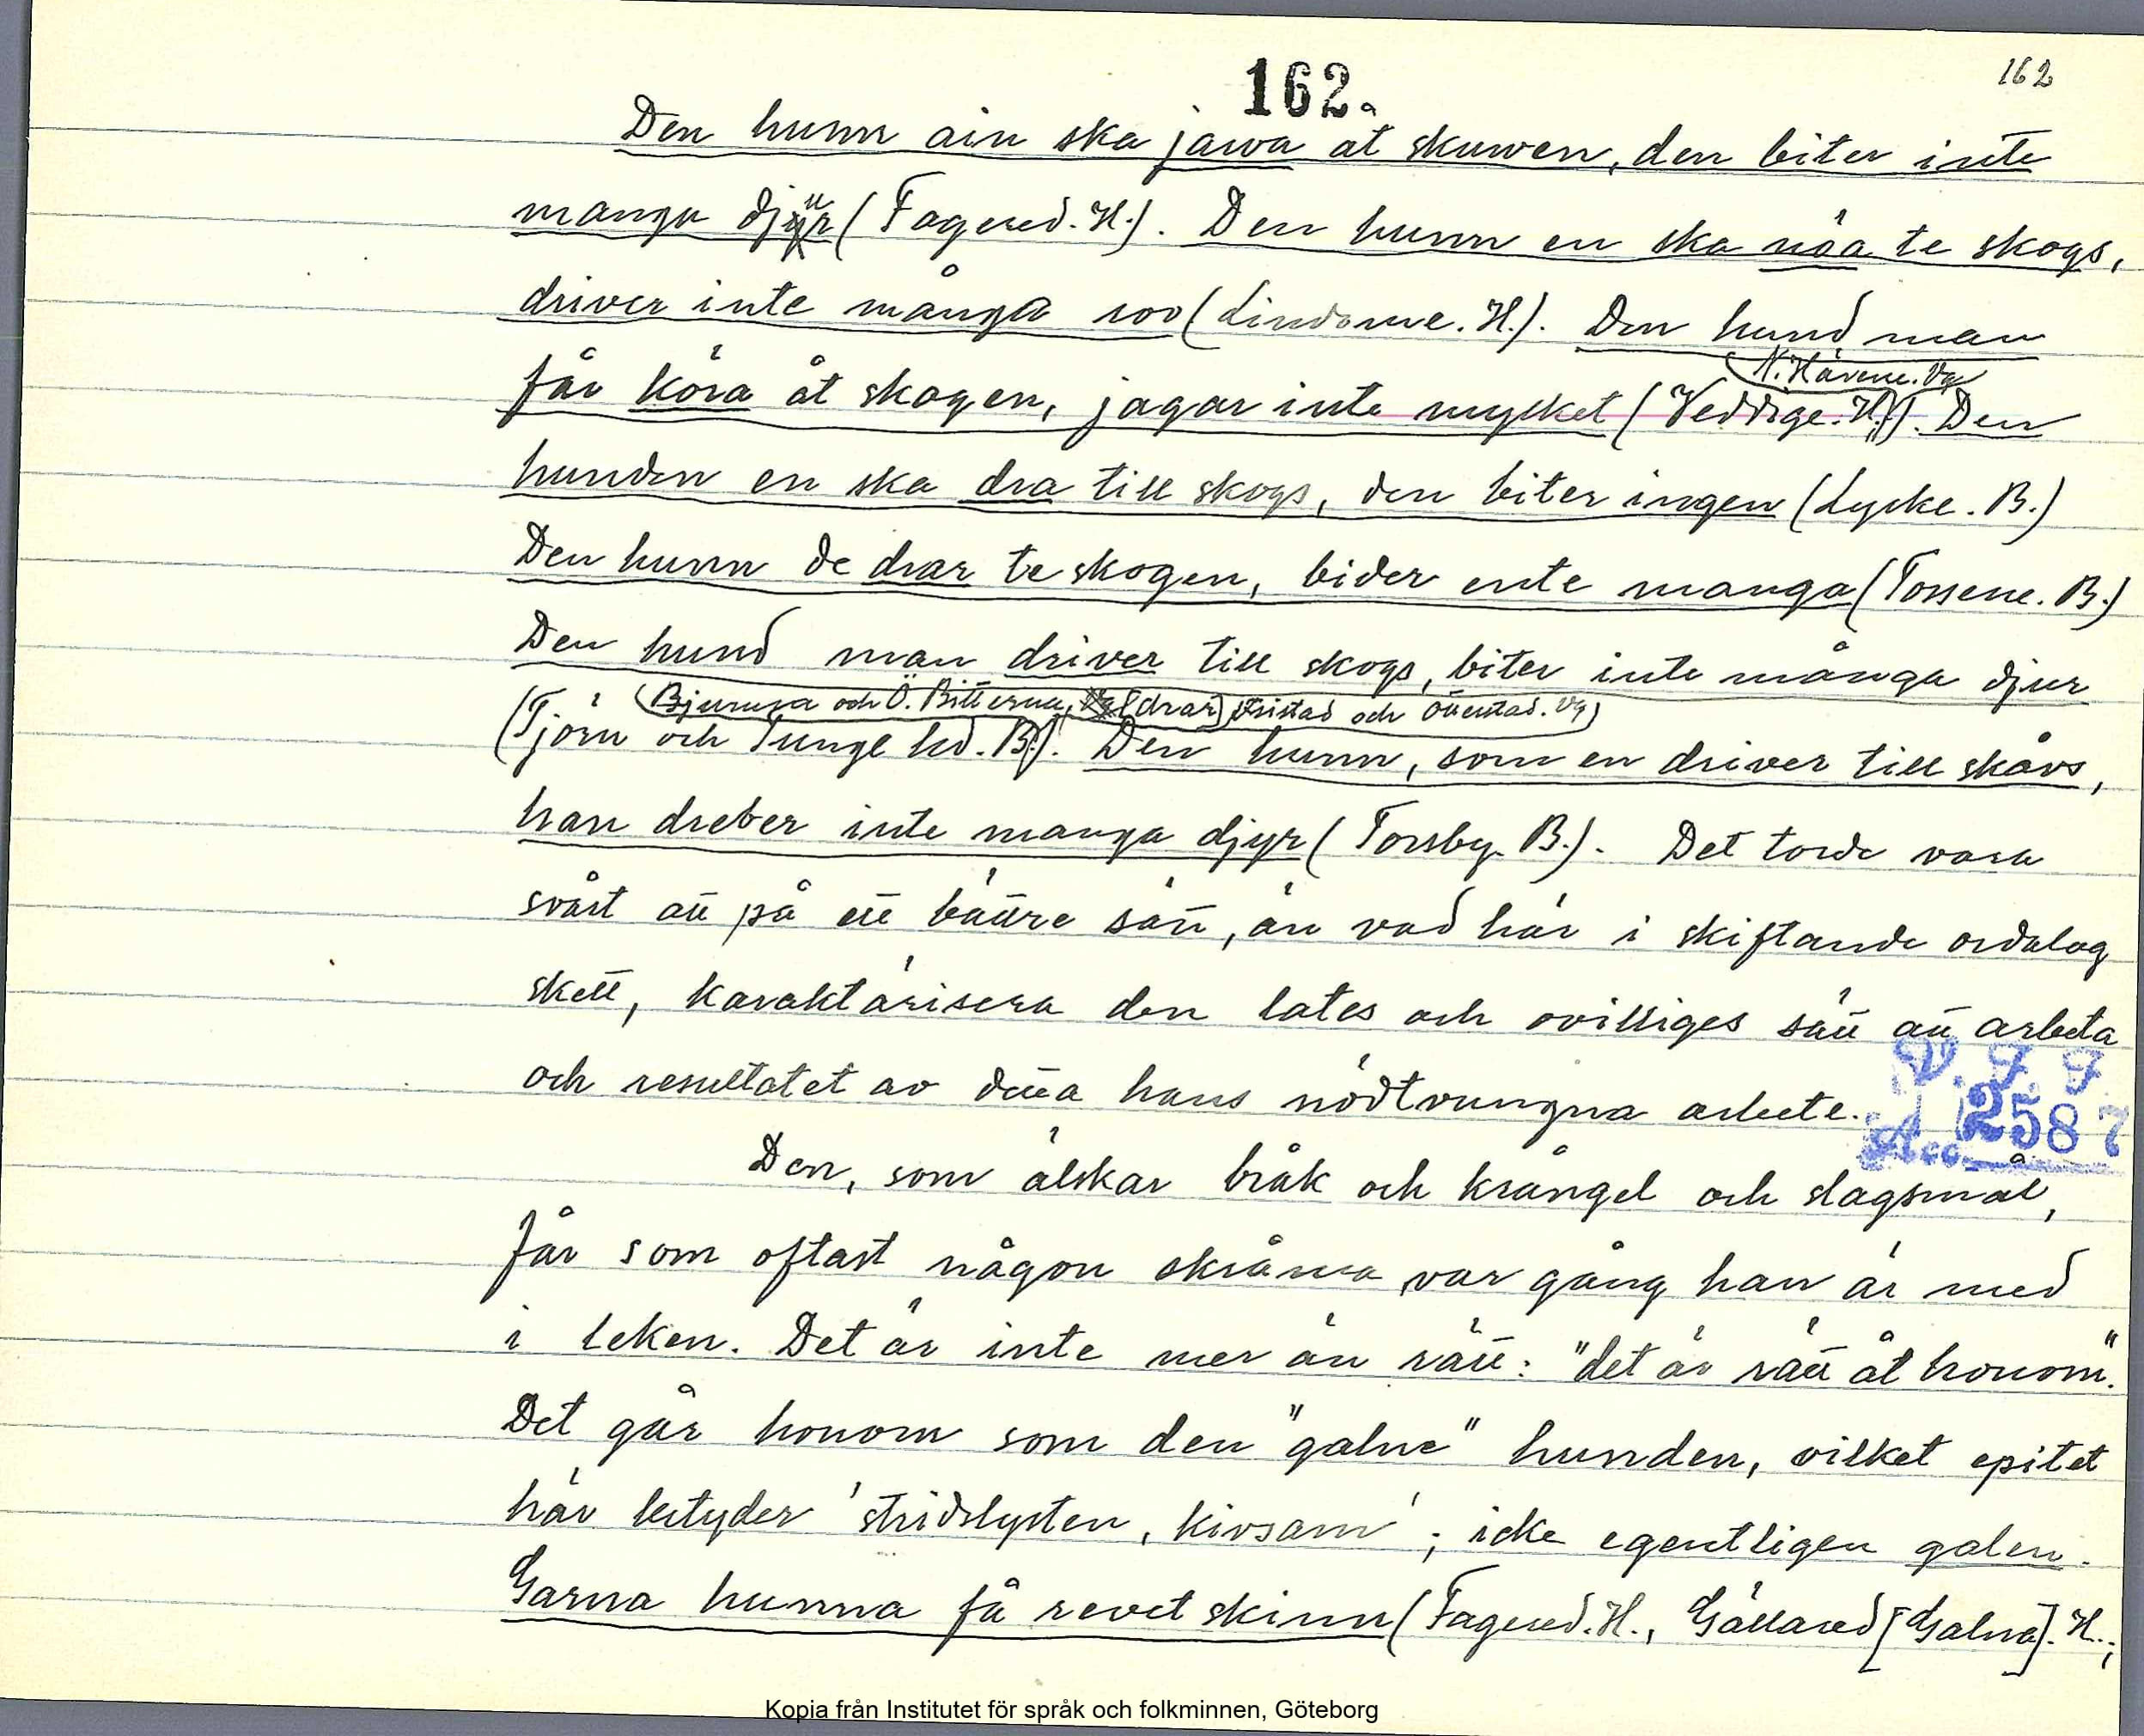 162.
162
Den hunn ain ska jawa at skuwen, den biter inte
manga djur (Fagered. H.). Den hunn en ska nöa te skogs,
driver inte många roo (Lindome. H.). Den hund man
N. Härene. Vg
får köra åt skogen, jagar inte mycket (Veddige. H.,). Den
hunden en ska dra till skogs, den biter ingen (Lycke. B.)
Den hunn de drar te skogen, bider ente manga (Tossene. B.)
Den hund man driver till skogs, biter inte många djur
Bjurum och Ö. Bitterna, [drar] Fristad och Öttestad. Vg
(Tjörn och Tunge hd. B.). Den hunn, som en driver till skövs,
han dreber inte manga djyr (Torsby. B.). Det torde vara
svårt att på ett bättre sätt, än vad här i skiftande ordalag
skett, karaktärisera den lates och ovilliges sätt att arbeta
och resultatet av detta hans nödtvungna arbete.
V. F. F.
Acc. 2587
Den, som älskar bråk och krångel och slagsmål,
får som oftast någon skråma var gång han är med
i leken. Det är inte mer än rätt: "det är rätt åt honom".
Det går honom som den "galne" hunden, vilket epitet
här betyder 'stridslysten, kivsam'; icke egentligen galen.
Garna hunna få revet skinn (Fagered. H., Gällared [Galna]. H.;
Kopia från Institutet för språk och folkminnen, Göteborg